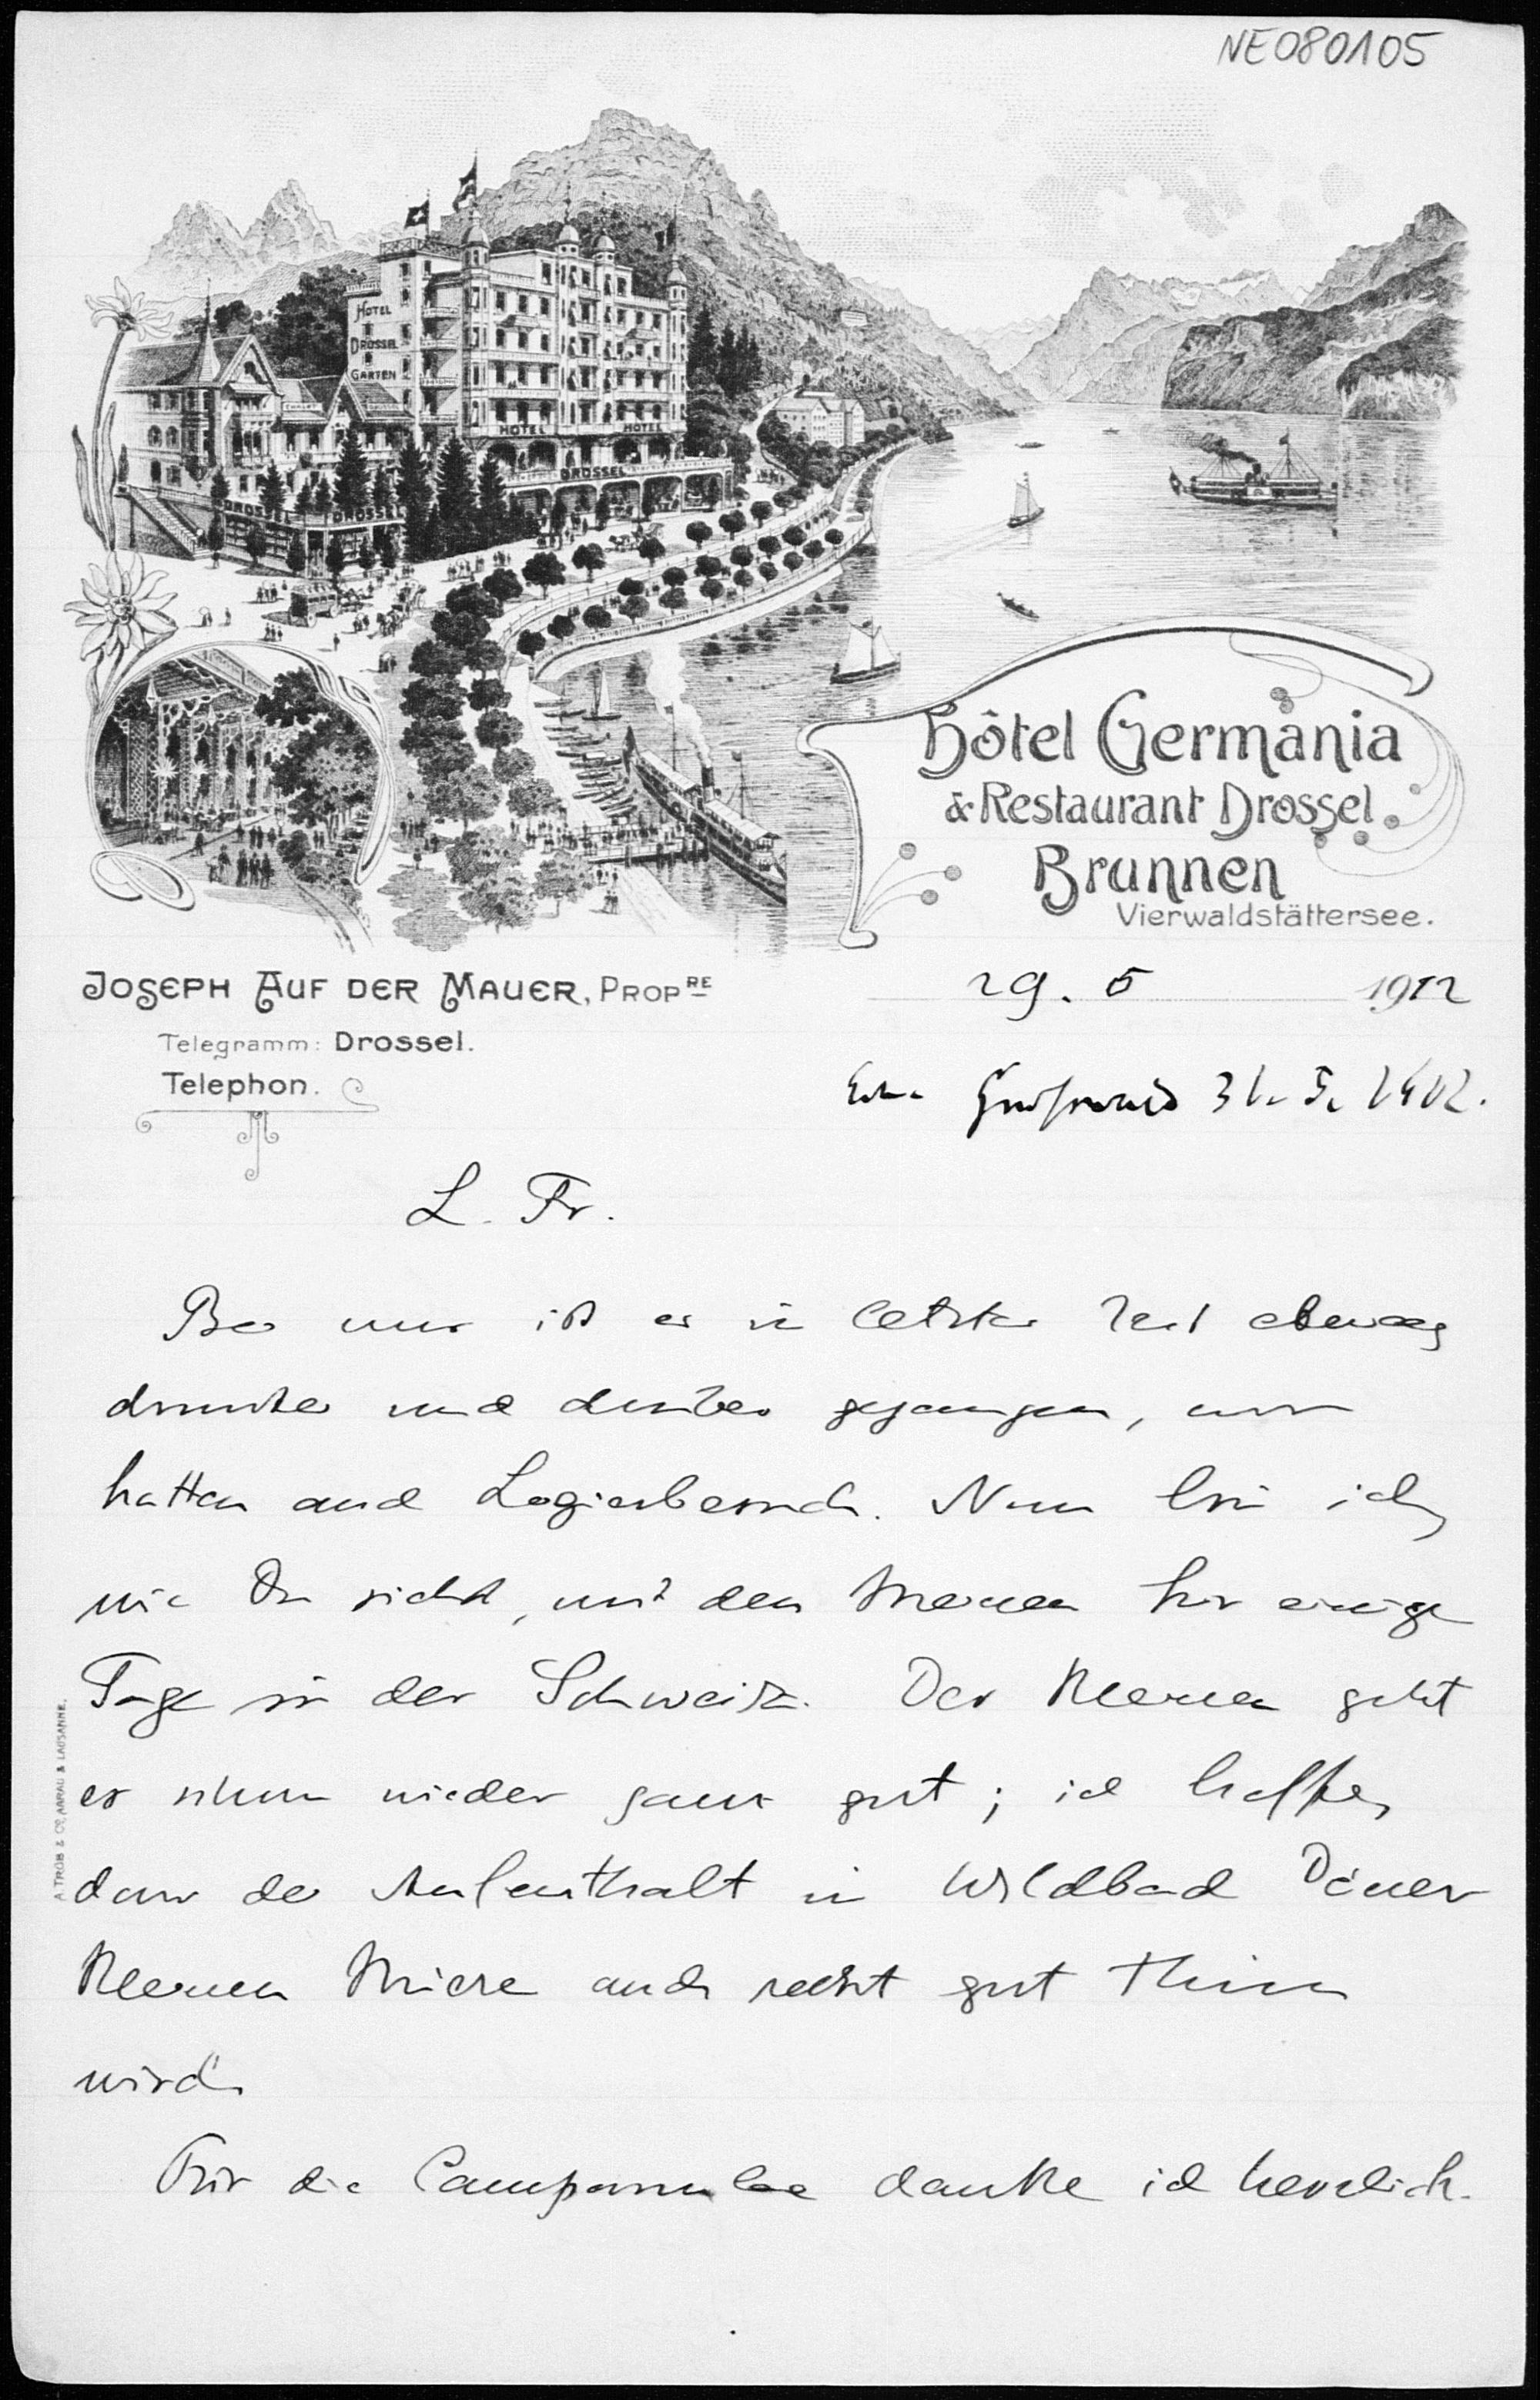 NE080105
HOTEL
DROSSEL
GARTEN
HOTEL HOTEL
DROSSEL
DROSSEL DROSSEL
Hôtel Germania
& Restaurant Drossel
Brunnen
Vierwaldstättersee.
JOSEPH AUF DER MAUER, PROPRE
Telegramm: Drossel.
Telephon.
29. 5 1912
31. 5. 1912.
L. Fr.
Bei uns ist es in letzter Zeit etwas
drunter und drüber gegangen, wir
hatten auch Logierbesuch. Nun bin ich
wie Du siehst, mit den Meinen für einige
Tage in der Schweiz. Den Kleinen geht
es schon wieder ganz gut; ich hoffe,
dass der Aufenthalt in Wildbad Deiner
kleinen Miere auch recht gut thun
wird.
Für die Campanulae danke ich herzlich.
A. TRÜB & CO. AARAU & LAUSANNE.